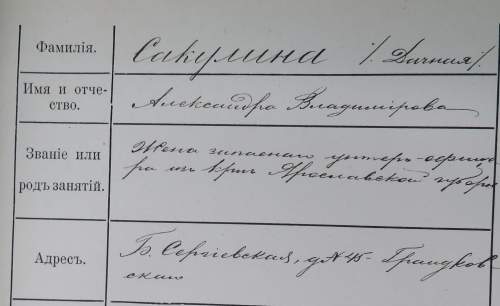 Фамилія.
Сакулина /. Дачная/.
Имя и отче-
ство.
Александра Владимірова
Званіе или
родъ занятій.
Жена запаснаго унтеръ-офице
ра изъ кр-нъ Ярославской губерні
Адресъ.
Б. Сергіевская, д № 45-
скаго